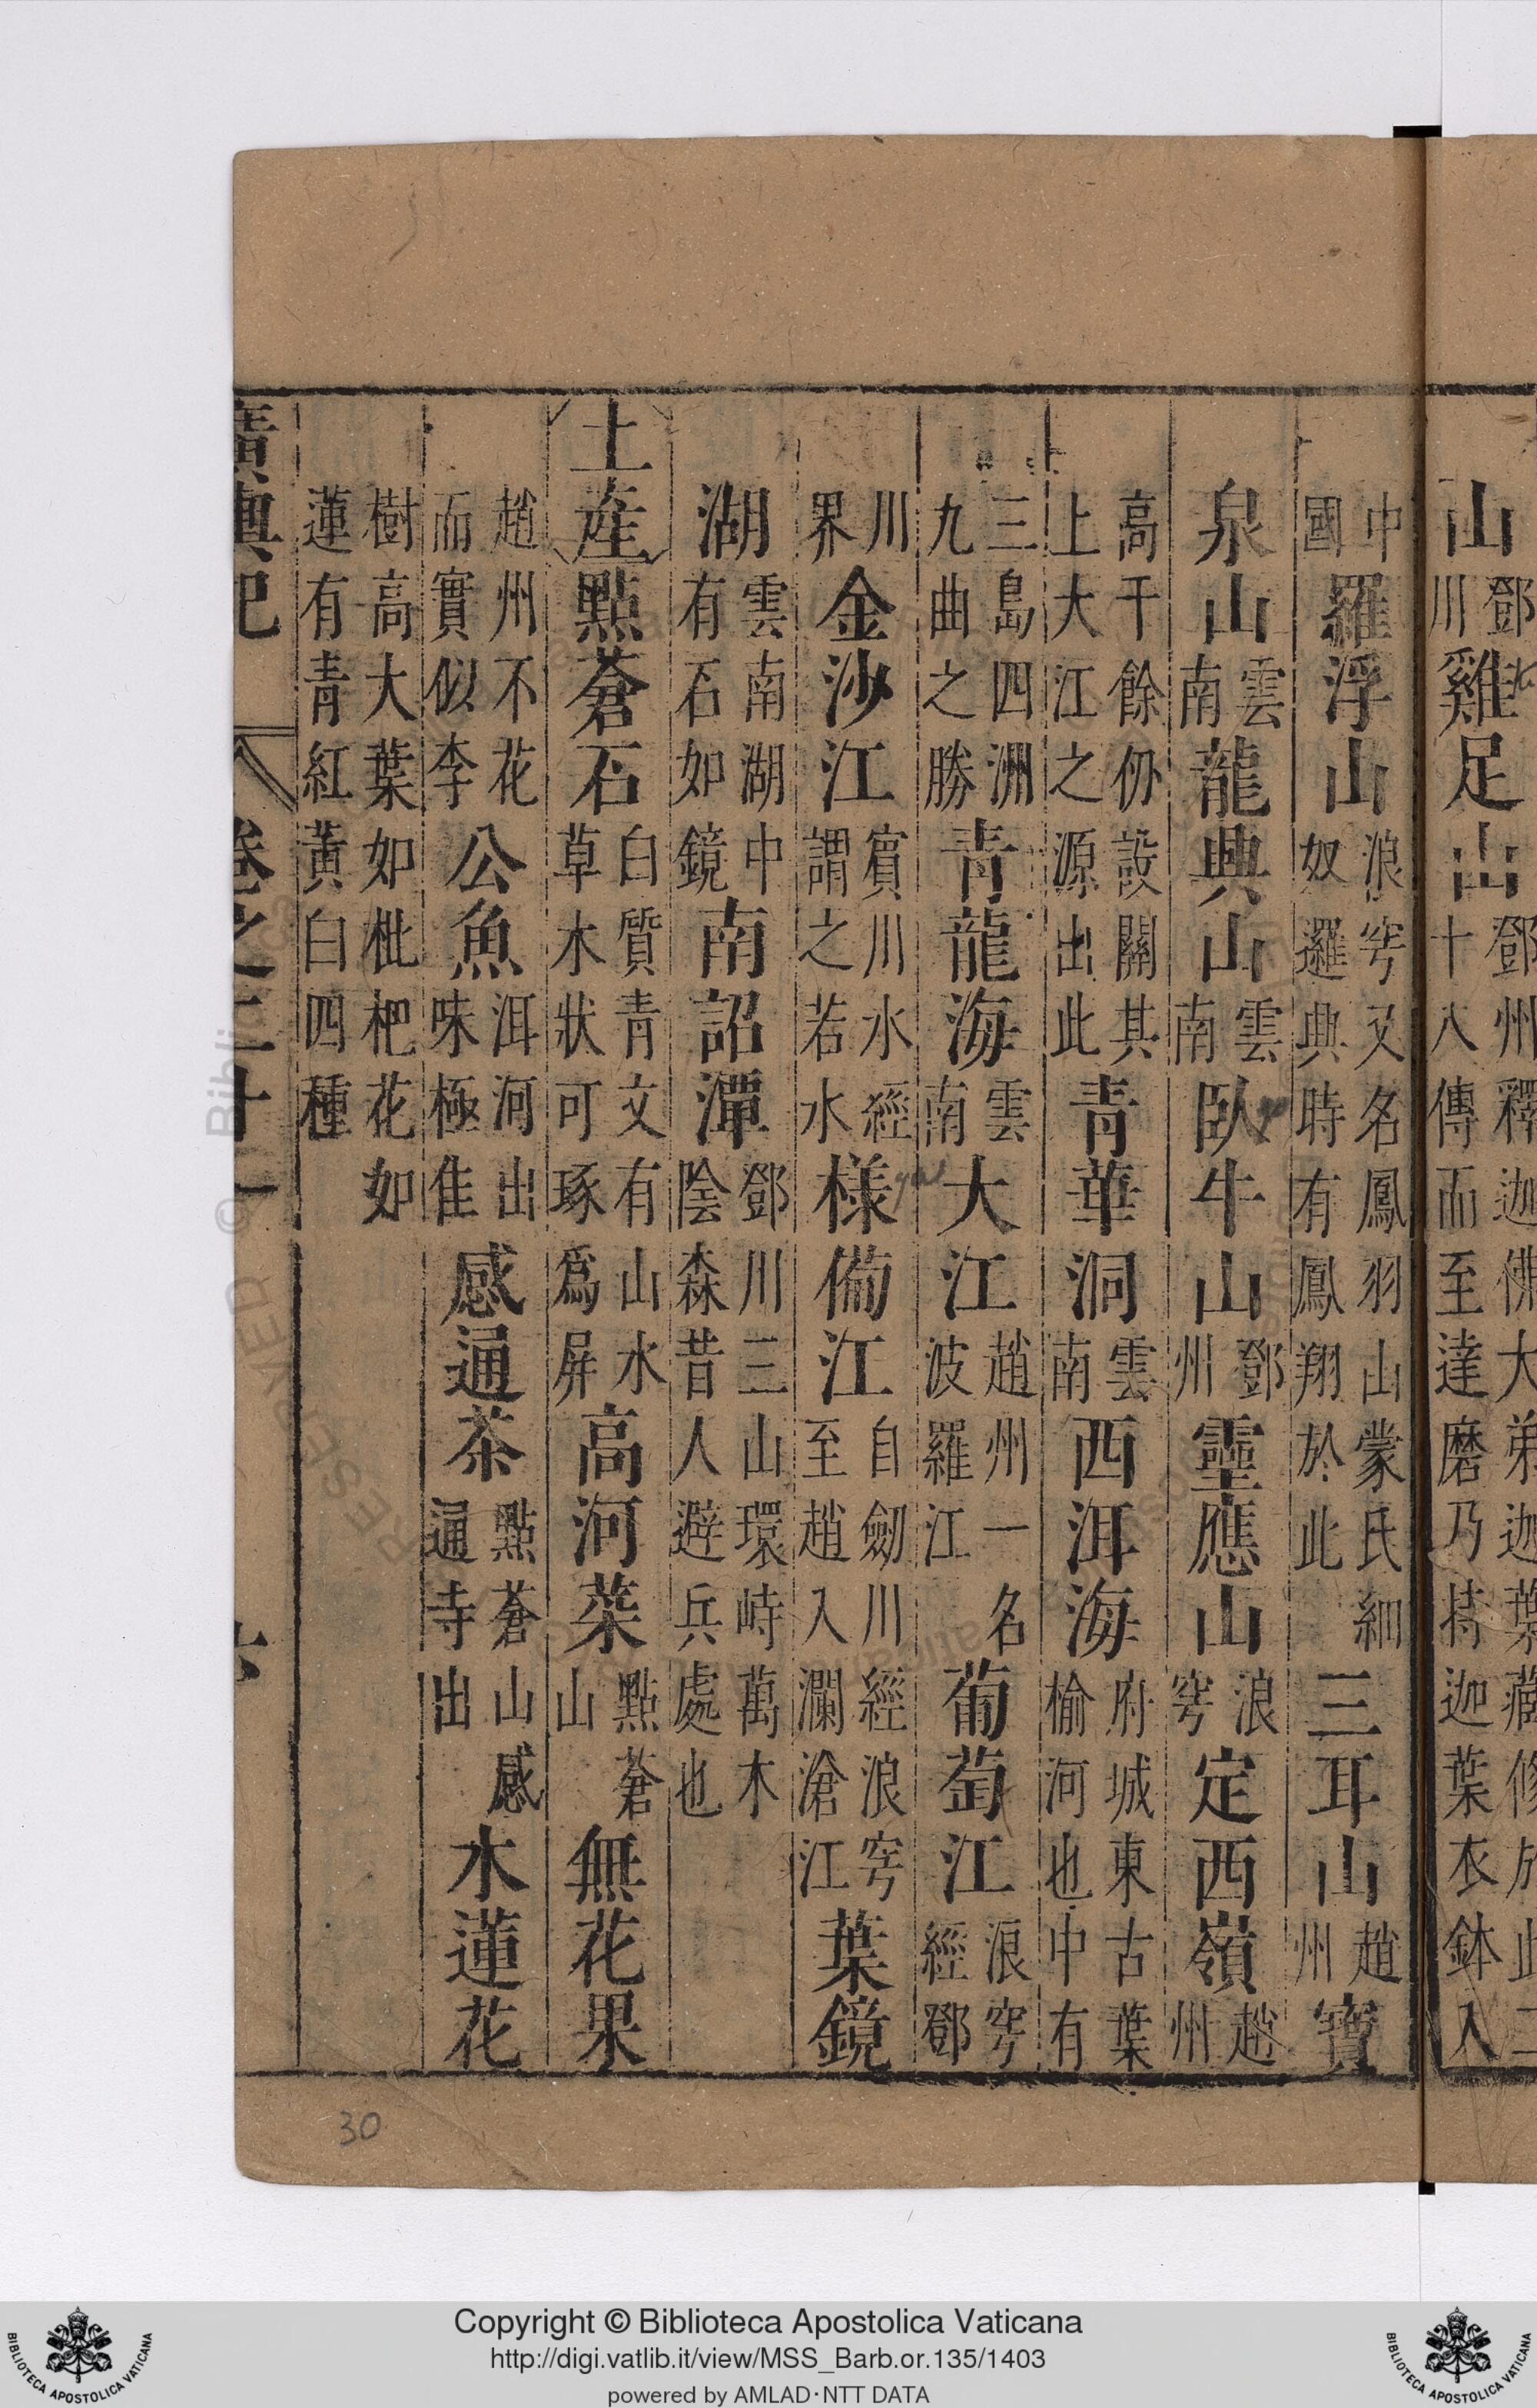 山鄧川北雞足山鄧州釋迦佛大弟迦葉藏修於此二十八傳而至達磨乃持迦葉衣鉢入
中國羅浮山浪穹又名鳳羽山蒙氏細奴邏典時有鳳翔於此三耳山趙州寶
泉山雲南龍興山雲南臥牛山鄧州靈應山浪穹定西嶺趙州
高千餘仞設關其上大江之源出此青華洞雲南西洱海府城東古葉榆河也中有
三島四洲九曲之勝青龍海雲南大江趙州一名波羅江葡萄江浪穹經鄧
川界金沙江賓川水經謂之若水樣備江自劒川經浪穹至趙入瀾滄江葉鏡
湖雲南湖中有石如鏡南詔潭鄧川三山環峙萬木陰森昔人避兵處也
土産點蒼石白質青文有山水草木狀可琢爲屏高河菜點蒼山無花果
趙州不花而實似李公魚洱河出味極佳感通茶點蒼山感通寺出木蓮花
樹高大葉如枇杷花如蓮有青紅黃白四種
廣輿記 卷之二十一
30
Copyright © Biblioteca Apostolica Vaticana
http://digi.vatlib.it/view/MSS_Barb.or.135/1403
powered by AMLAD·NTT DATA
BIBLIOTECA APOSTOLICA VATICANA
BIBLIOTECA APOSTOLICA VATICANA